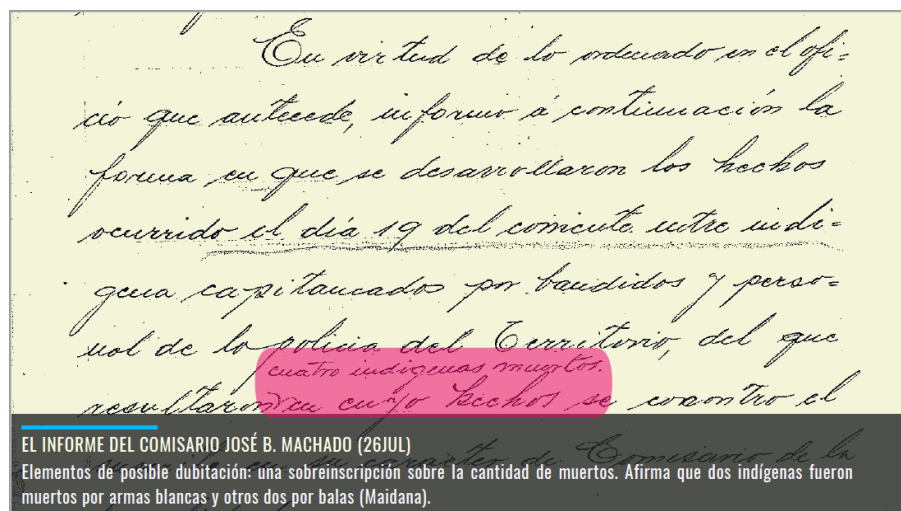 En virtud de lo ordenado en el ofi=
cio que antecede, informo á continuación la
forma en que se desarrollaron los hechos
ocurrido el día 19 del corriente entre indi=
gena capitaneados por bandidos y perso=
nal de la policia del Territorio, del que
cuatro indigenas muertos.
resultaron en cuyo hechos se encontro el
en su caracter de Comisario de la
EL INFORME DEL COMISARIO JOSÉ B. MACHADO (26JUL)
Elementos de posible dubitación: una sobreinscripción sobre la cantidad de muertos. Afirma que dos indígenas fueron
muertos por armas blancas y otros dos por balas (Maidana).